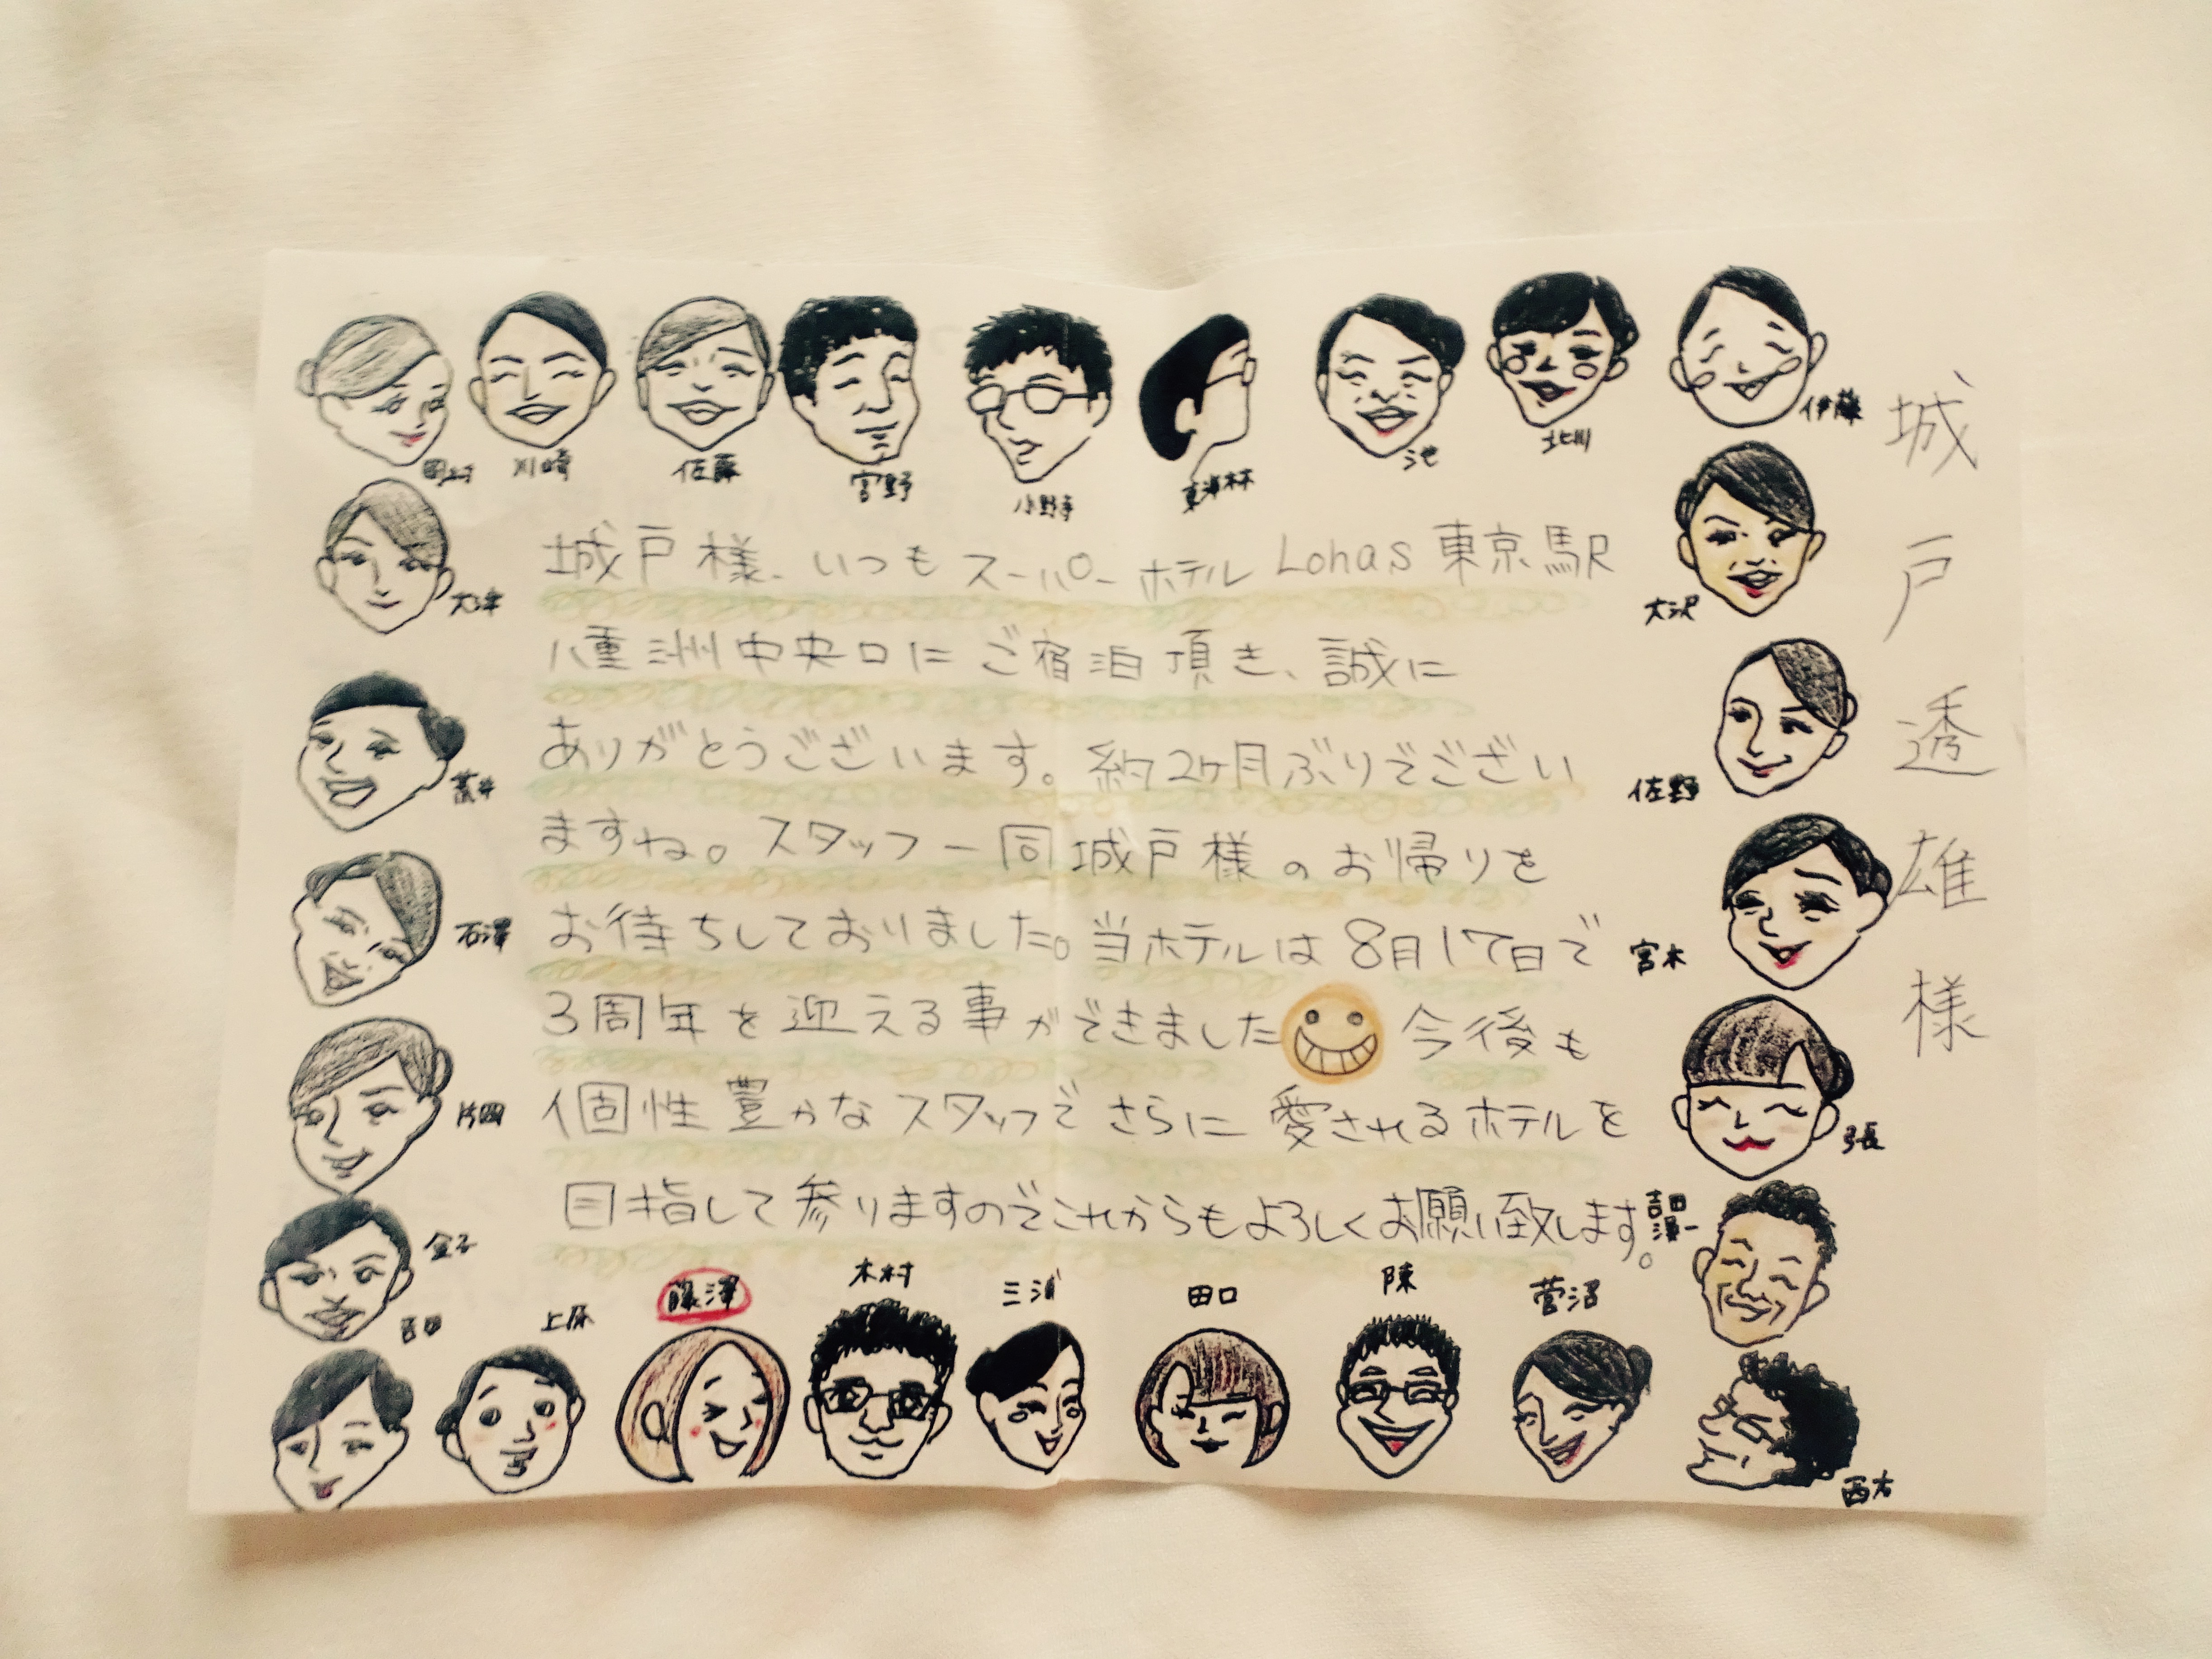 城戸透雄様
城戸様、いつもスーパーホテルLohas東京駅
八重洲中央口にご宿泊頂き、誠に
ありがとうございます。約2ヶ月ぶりでござい
ますね。スタッフ一同城戸様のお帰りを
お待ちしておりました。当ホテルは8月17日で
3周年を迎える事ができました 今後も
個性豊かなスタッフでさらに愛されるホテルを
目指して参りますのでこれからもよろしくお願い致します。
岡村
川崎
佐藤
宮野
小野寺
東海林
池
北川
伊藤
大沢
佐野
宮木
張
荒井
石澤
片岡
金子
吉田
上原
藤澤
木村
三浦
田口
陳
菅沼